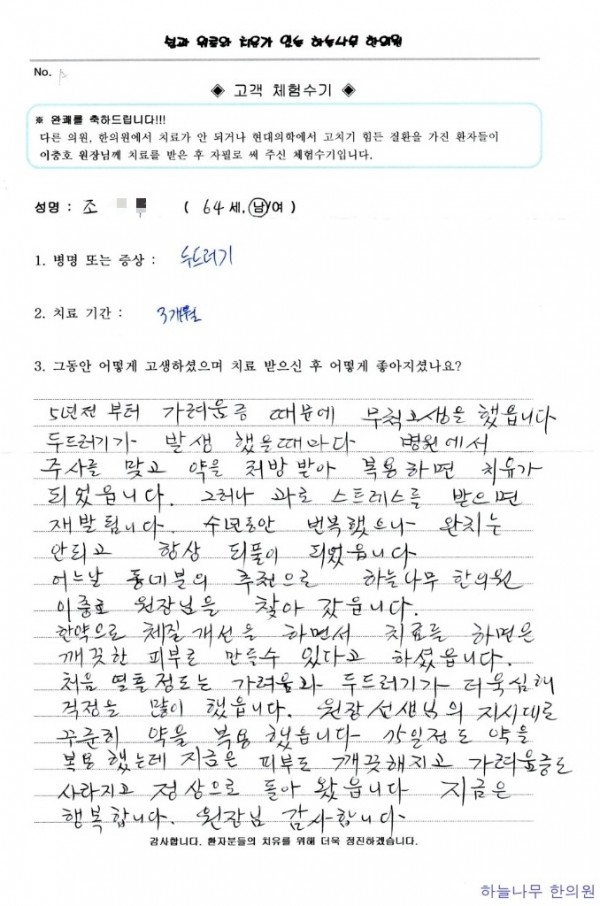 No.
◈ 고객 체험수기 ◈
※ 완쾌를 축하드립니다!!!
다른 의원, 한의원에서 치료가 안 되거나 현대의학에서 고치기 힘든 질환을 가진 환자들이
이중호 원장님께 치료를 받은 후 자필로 써 주신 체험수기입니다.
성명 : 조 ( 64 세, 남/여 )
1. 병명 또는 증상 : 두드러기
2. 치료 기간 : 3개월
3. 그동안 어떻게 고생하셨으며 치료 받으신 후 어떻게 좋아지셨나요?
5년전 부터 가려움증 때문에 무척고생을 했읍니다
두드러기가 발생 했을때마다 병원에서
주사를 맞고 약을 처방받아 복용하면 치유가
되었읍니다. 그러나 과로 스트레스를 받으면
재발됩니다. 수년동안 번복했으나 완치는
안되고 항상 되풀이 되었읍니다
어느날 동네분의 추천으로 하늘나무 한의원
이중호 원장님을 찾아 갔읍니다.
한약으로 체질개선을 하면서 치료를 하면은
깨끗한 피부로 만들수 있다고 하셨읍니다.
처음 열흘정도는 가려움과 두드러기가 더욱심해
걱정을 많이 했읍니다. 원장선생님의 지시대로
꾸준히 약을 복용 했읍니다 15일정도 약을
복용 했는데 지금은 피부도 깨끗해지고 가려움증도
사라지고 정상으로 돌아 왔읍니다 지금은
행복합니다. 원장님 감사합니다.
감사합니다. 환자분들의 치유를 위해 더욱 정진하겠습니다.
하늘나무 한의원